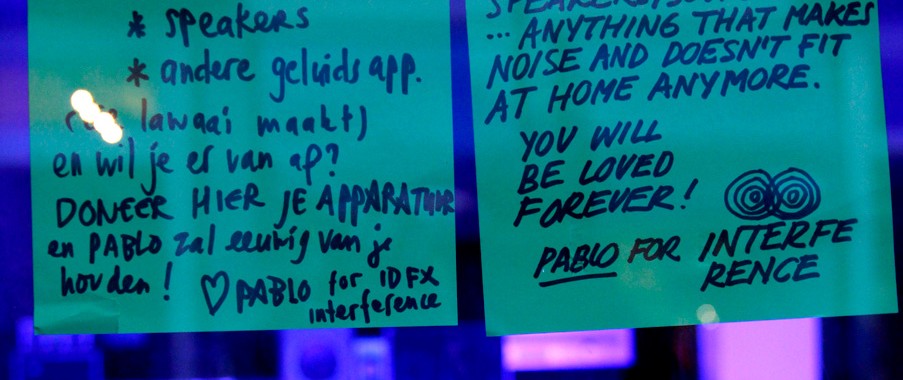 * speakers
* andere geluidsapp.
lawaai maakt)
en wil je er van af?
DONEER HIER JE APPARATUUR
en PABLO zal eeuwig van je
houden!
♡ PABLO for IDFX
interference
... ANYTHING THAT MAKES
NOISE AND DOESN'T FIT
AT HOME ANYMORE.
YOU WILL
BE LOVED
FOREVER!
PABLO FOR INTERFE
RENCE